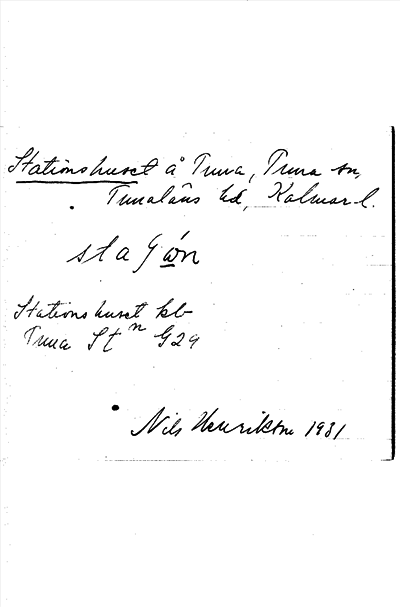 Stationshuset å Tuna, Tuna sn,
Tunaläns hd, Kalmar l.
stagón
Stationshuset kb
Tuna Stn G29
Nils Henrikson 1931